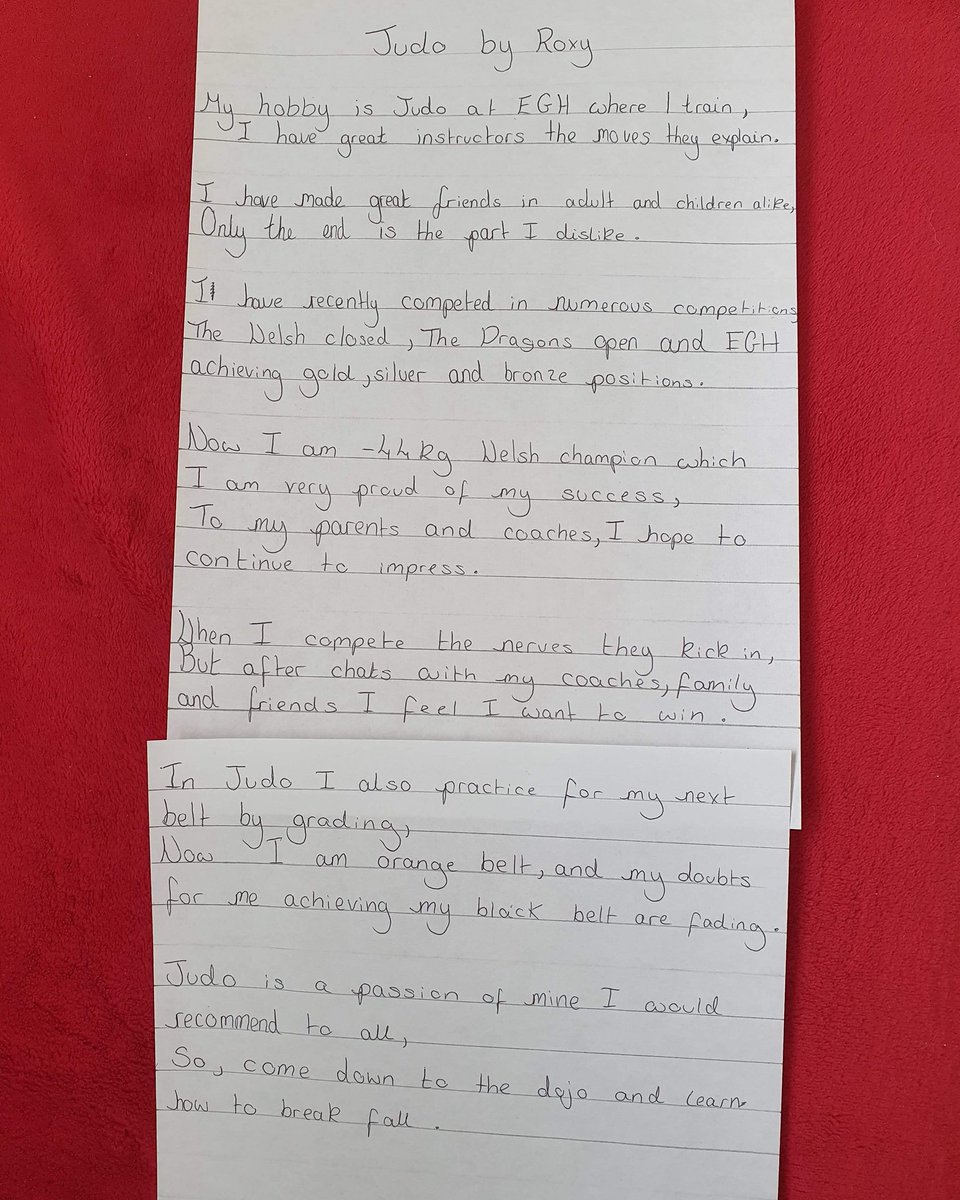 Judo by Roxy
My hobby is Judo at EGH where I train,
I have great instructors the moves they explain.
I have made great friends in adult and children alike,
Only the end is the part I dislike.
I have recently competed in numerous competitions
The Welsh closed, The Dragons open and EGH
achieving gold, silver and bronze positions.
Now I am -44kg Welsh champion which
I am very proud of my success,
To my parents and coaches, I hope to
continue to impress.
When I compete the nerves they kick in,
But after chats with my coaches, family
and friends I feel I want to win.
In Judo I also practice for my next
belt by grading,
Now I am orange belt, and my doubts
for me achieving my black belt are fading.
Judo is a passion of mine I would
recommend to all,
So, come down to the dojo and learn
how to break fall.